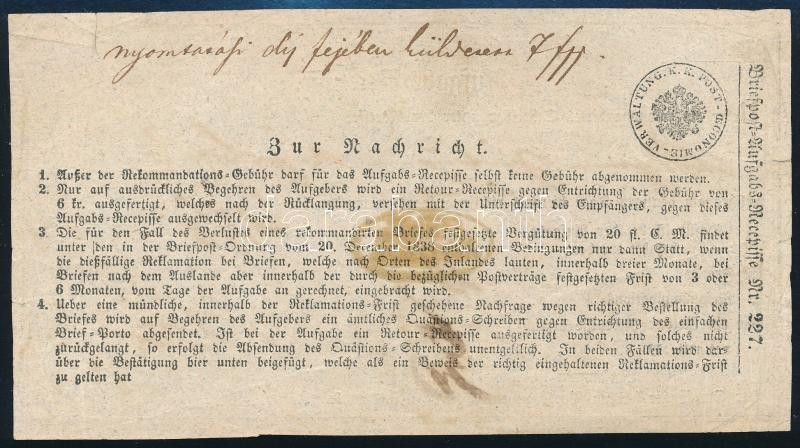 nyomtatási díj fejében küldetett 7 fpp.
VERWALTUNG. K. K. POST-ŒCONOMIE-
Zur Nachricht.
1. Außer der Rekommandations-Gebühr darf für das Aufgabs-Recepisse selbst keine Gebühr abgenommen werden.
2. Nur auf ausdrückliches Begehren des Aufgebers wird ein Retour-Recepisse gegen Entrichtung der Gebühr von
6 kr. ausgefertigt, welches nach der Rücklangung, versehen mit der Unterschrift des Empfängers, gegen dieses
Aufgabs-Recepisse ausgewechselt wird.
3. Die für den Fall des Verlustes eines rekommandirten Briefes festgesetzte Vergütung von 20 fl. C. M. findet
unter den in der Briefpost-Ordnung vom 20. December 1838 enthaltenen Bedingungen nur dann Statt, wenn
die dießfällige Reklamation bei Briefen, welche nach Orten des Inlandes lauten, innerhalb dreier Monate, bei
Briefen nach dem Auslande aber innerhalb der durch die bezüglichen Postverträge festgesetzten Frist von 3 oder
6 Monaten, vom Tage der Aufgabe an gerechnet, eingebracht wird.
4. Ueber eine mündliche, innerhalb der Reklamations-Frist geschehene Nachfrage wegen richtiger Bestellung des
Briefes wird auf Begehren des Aufgebers ein ämtliches Quästions-Schreiben gegen Entrichtung des einfachen
Brief-Porto abgesendet. Ist bei der Aufgabe ein Retour-Recepisse ausgefertigt worden, und solches nicht
zurückgelangt, so erfolgt die Absendung des Quästions-Schreibens unentgeltlich. In beiden Fällen wird dar-
über die Bestätigung hier unten beigefügt, welche als ein Beweis der richtig eingehaltenen Reklamations-Frist
zu gelten hat
Briefpost-Aufgabs-Recepisse Nr. 227.